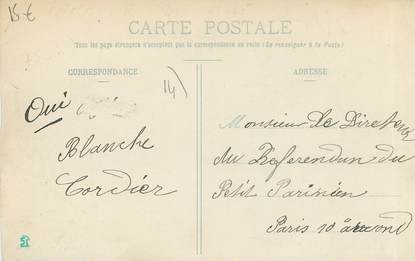 15 €
CARTE POSTALE
Tous les pays étrangers n'acceptent pas la correspondance au recto (Se renseigner à la Poste)
CORRESPONDANCE
ADRESSE
14)
Oui
Blanche
Cordier
Monsieur Le Directeur
du Referendun du
Petit Parisien
Paris 10 arrond